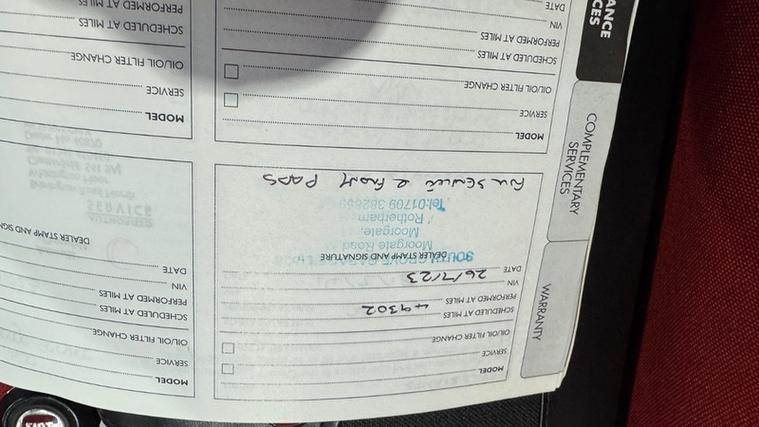 WARRANTY
MODEL
SERVICE
OIL/OIL FILTER CHANGE
SCHEDULED AT MILES
PERFORMED AT MILES 49302
VIN
DATE 26/7/23
DEALER STAMP AND SIGNATURE
SOUTH GROVE GARAGE
Moorgate Road
Moorgate,
Rotherham
Tel:01709
SERVICE & FRONT PADS
MODEL
SERVICE
OIL/OIL FILTER CHANGE
SCHEDULED AT MILES
PERFORMED AT MILES
VIN
DATE
DEALER STAMP AND SIGN
COMPLEMENTARY
SERVICES
MODEL
SERVICE
OIL/OIL FILTER CHANGE
SCHEDULED AT MILES
PERFORMED AT MILES
VIN
DATE
MODEL
SERVICE
OIL/OIL FILTER CHANGE
SCHEDULED AT MILES
PERFORMED AT MILES
ANCE
CES